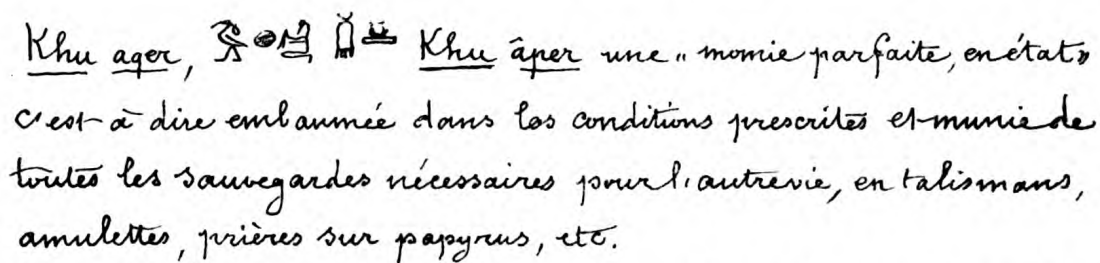 Khu ager, Khu âper une « momie parfaite, en état »
c'est-à dire embaumée dans les conditions prescrites et munie de
toutes les sauvegardes nécessaires pour l'autre vie, en talismans,
amulettes, prières sur papyrus, etc.